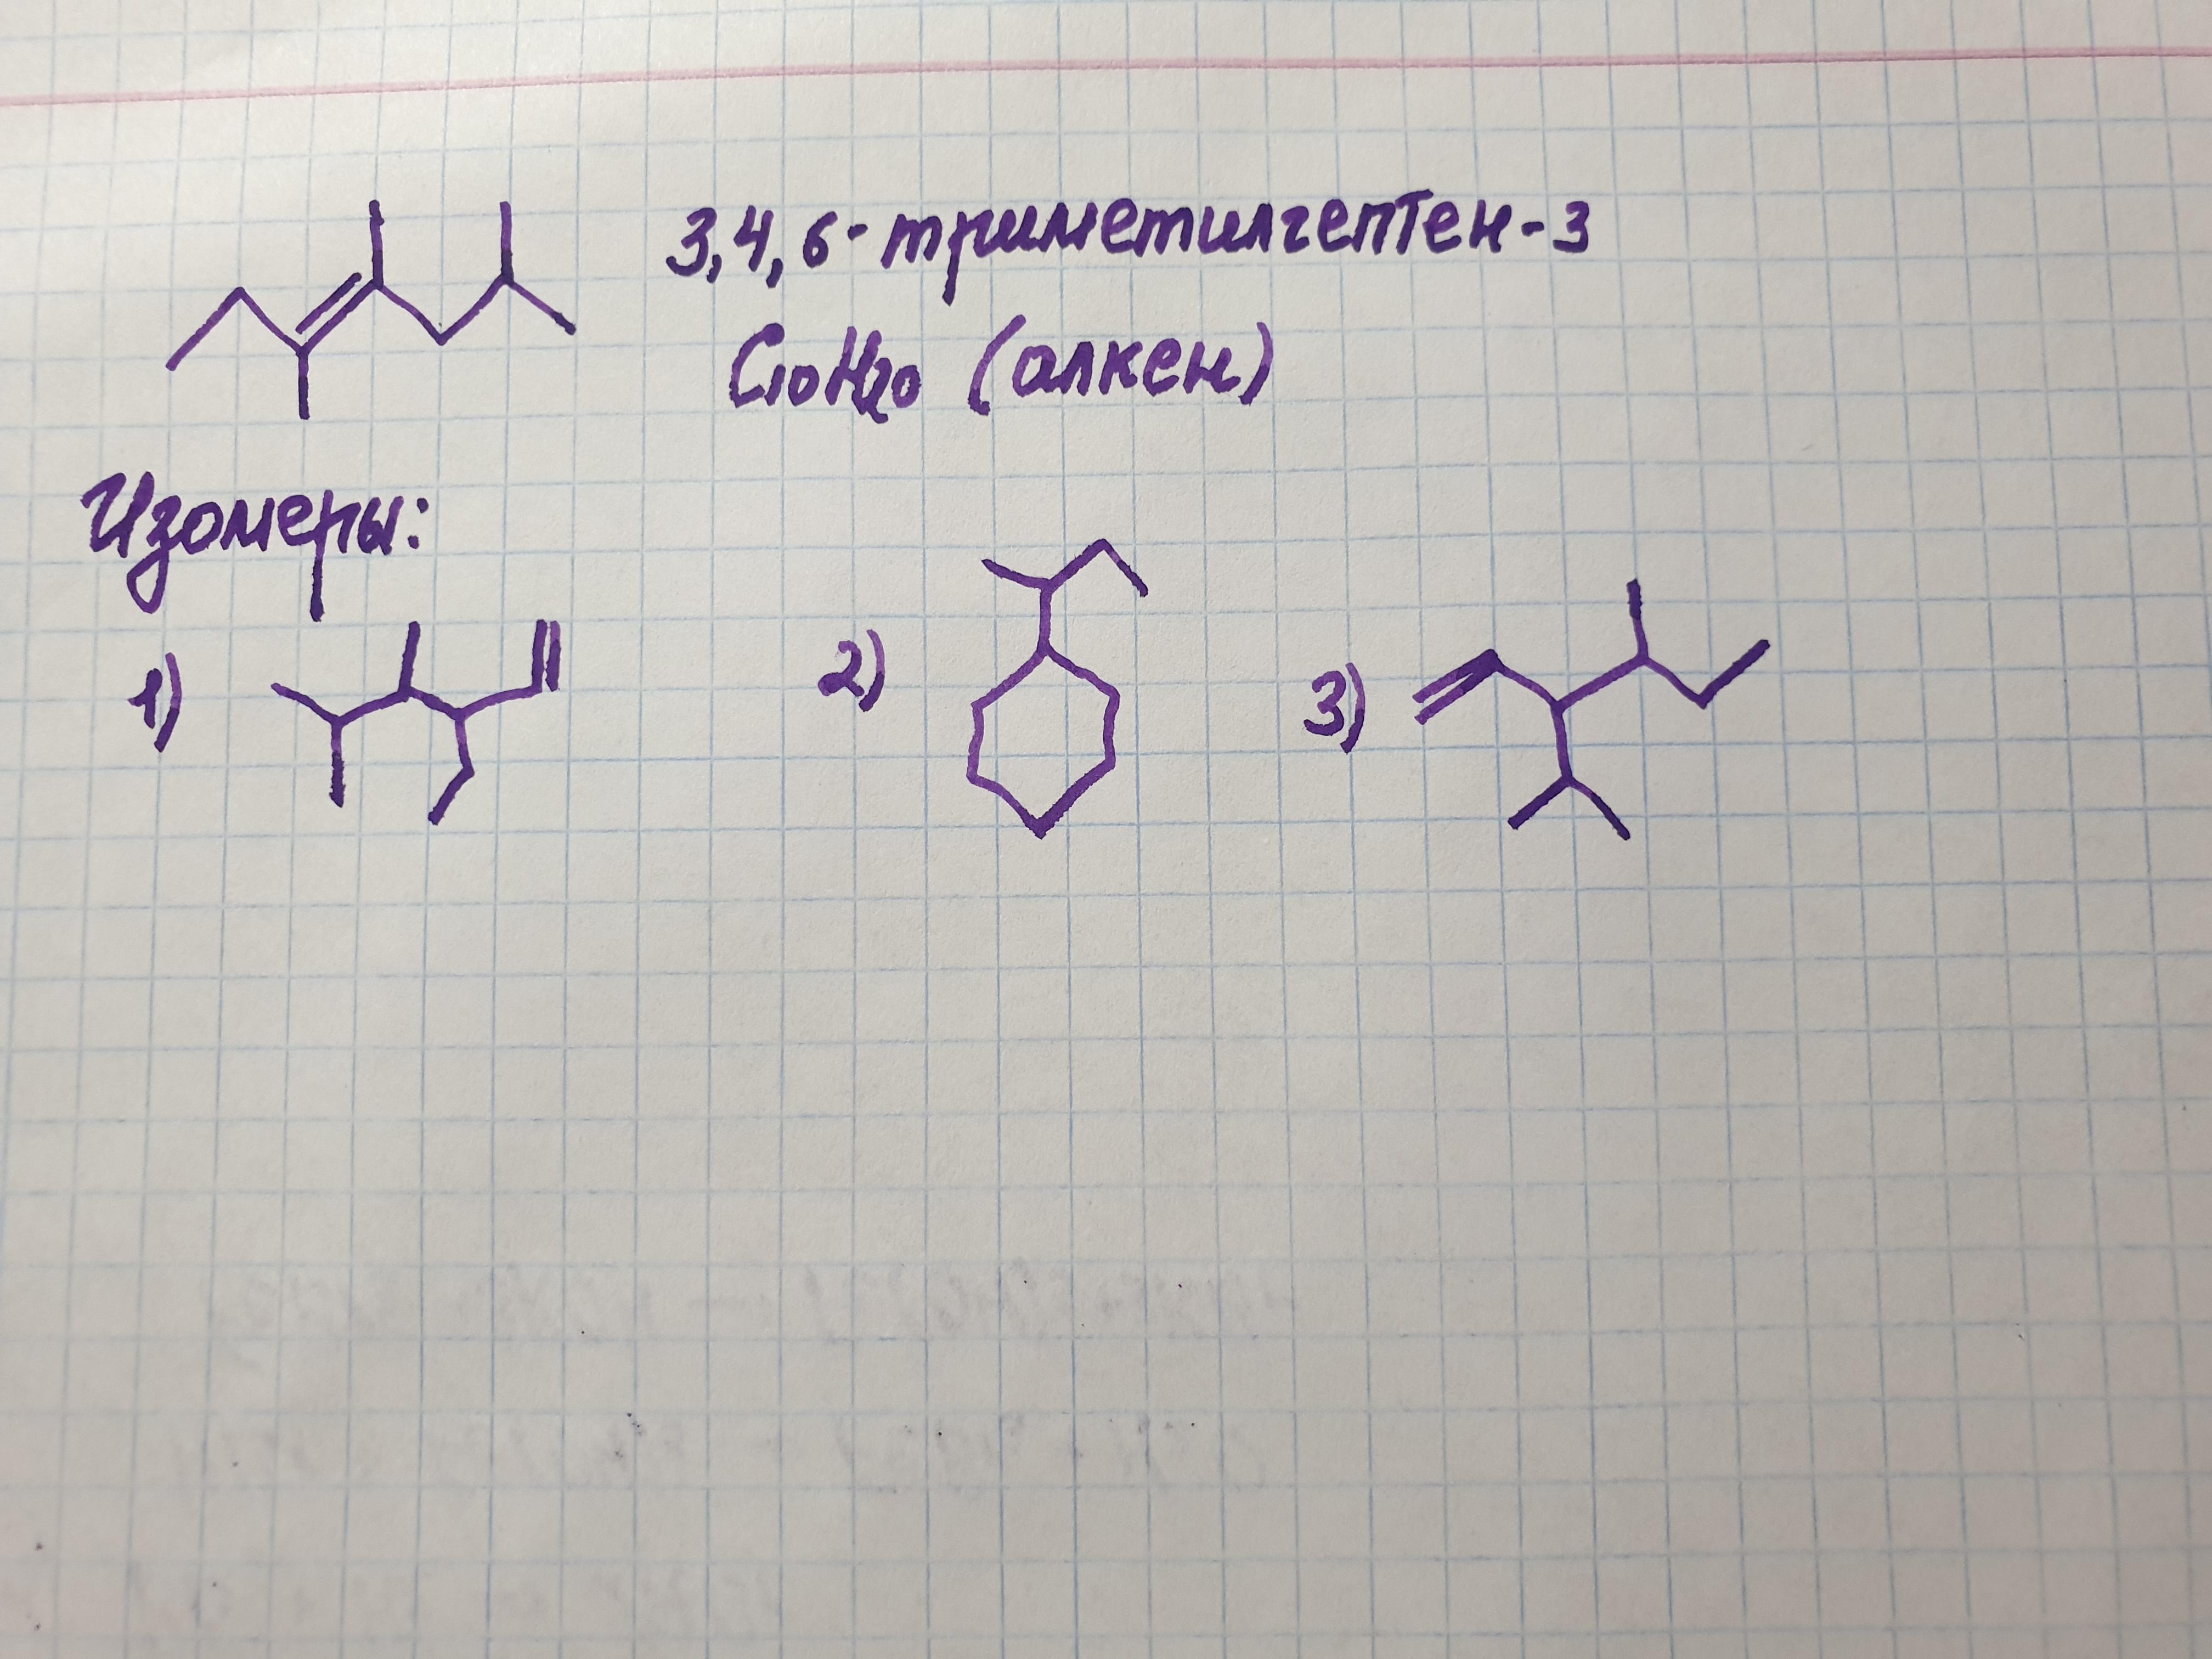 3,4,6-триметилгептен-3
C10H20 (алкен)
Изомеры:
1) 2) 3)